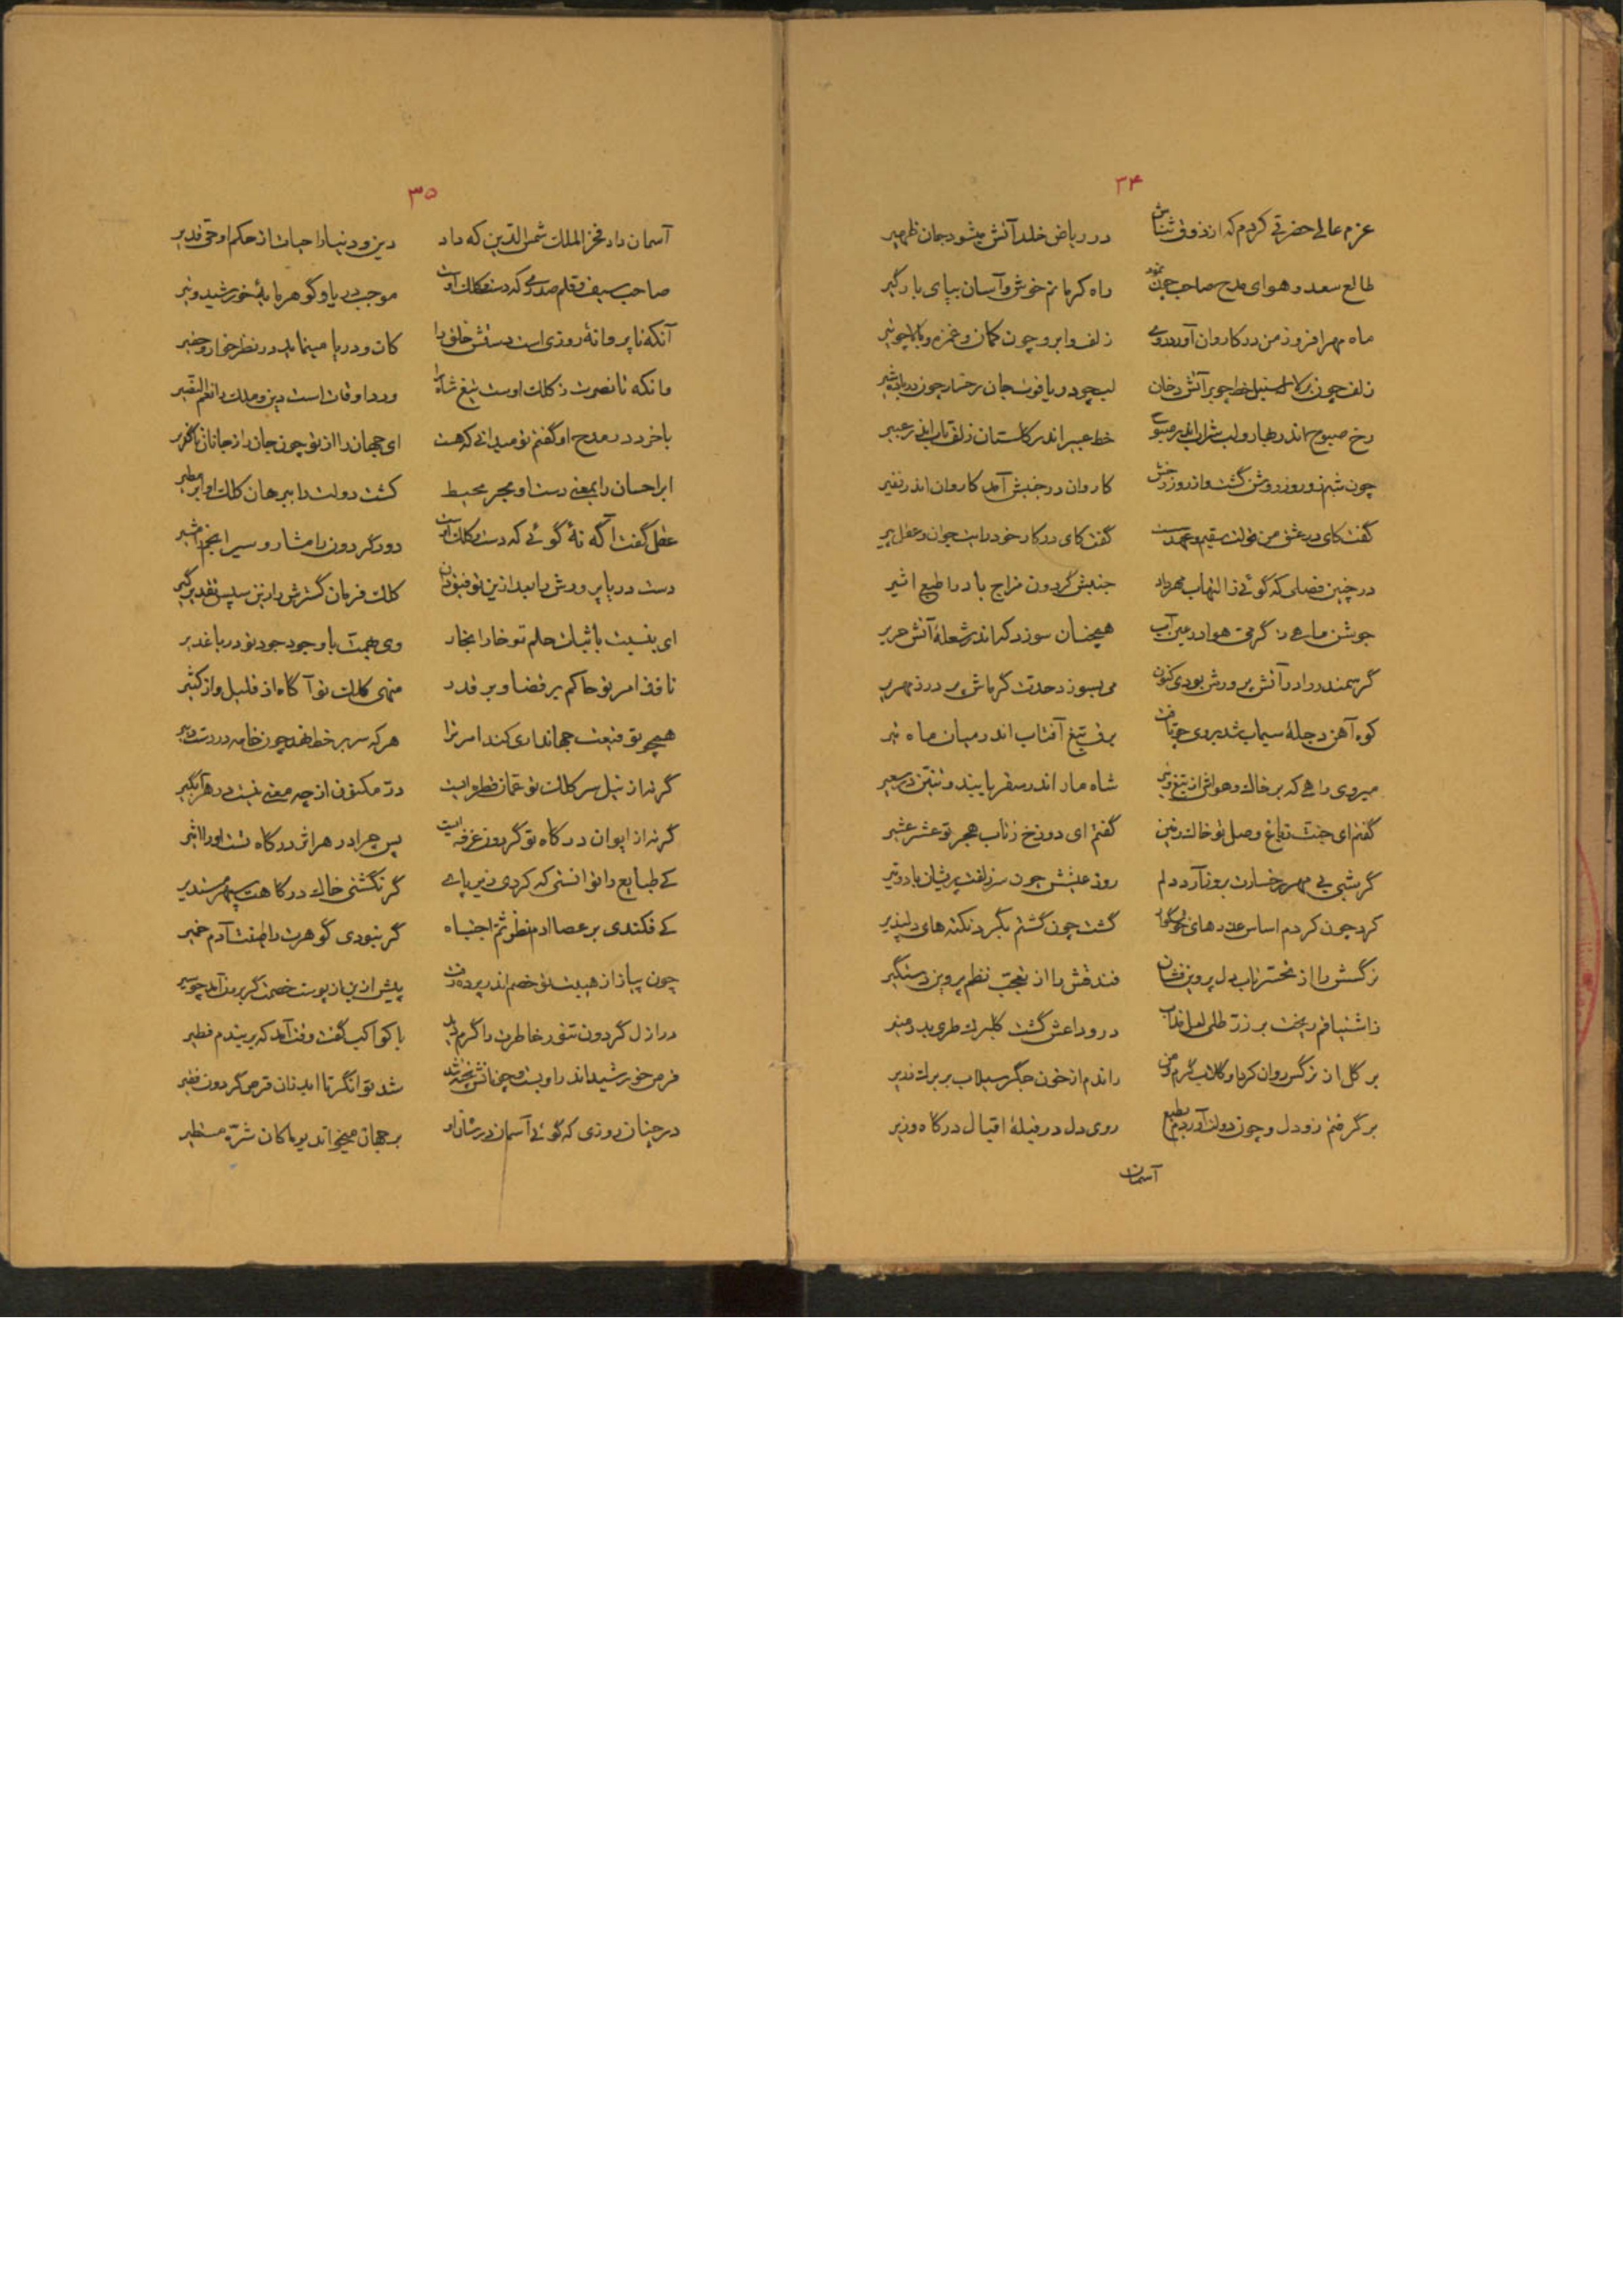 ۳۴
عزم عالی حضرتی کردم که از ذوق ثناش در ریاض خلد آتش میشود جان ظهیر
طالع سعد و هوای مدح صاحب چون نمود راه کرمانم خوش و آسان بپای بارگیر
ماه مهر افروز من در کاروان آورد روی زلف و ابرو چون کمان و غمزه و بالا چو تیر
زلف چون بر سنبل خط چو بر آتش دخان لب چو در یاقوت جان رخسار چون در باده شیر
رخ صبوح اندر بهار و لب شراب اندر صبوح خط عبیر اندر گلستان زلف تاب اندر عبیر
چون شبم زو روز روشن گشت و از روز رخش کاروان در جنبش آمد کاروان اندر نفیر
گفت کای در عشق من قولت سقیم و عهد سست گفت کای در کار خود رایت جوان و عقل پیر
در چنین فصلی که گوئی ز التهاب مهر داد جنبش گردون مزاج باد را طبع اثیر
جوشن ماهی ز گرمی هوا در عین آب همچنان سوزد که اندر شعلهٔ آتش حریر
گر سمندر را در آتش پرورش بودی کنون می بسوزد حدت گرماش پر در زمهریر
کوه آهن دجلهٔ سیماب شد بروی چو تافت برف تیغ آفتاب اندر میان ماه تیر
میروی راهی که بر خاک و هواش از تیغ و تیر شاه مار اندر سفر یابند و تنین در سعیر
گفتم ای جنت ز باغ وصل تو خاک زمین گفتم ای دوزخ ز تاب هجر تو عشر عشیر
گر شبی بی مهر رخسارت بروز آرد دلم روز عیشش چون سر زلفت پریشان باد و تیر
کرد چون کردم اساس عذرهای خوشگوار گشت چون گشتم بگرد نکته های دلپذیر
نرگسش را از تحسر ناب دل پروین فشان فندقش را از تعجب نظم پروین دستگیر
ز اشتیاقم ریخت بر زر طلی لعل مذاب در وداعش گشت گلبرگ طری بدر منیر
بر گل از نرگس روان کرد او گلاب گرم و من راندم از خون جگر سیلاب بر برگ زریر
برگرفتم زو دل و چون دولت آوردم بطبع روی دل در قبلهٔ اقبال درگاه وزیر
آسمان
۳۵
آسمان داد فخر الملک شمس الدین که داد دین و دنیا را حیات از حکم او حی قدیر
صاحب سیف و قلم صدری که دست و کلک اوست موجب دریا و گوهر مایهٔ خورشید و تیر
آنکه تا پروانهٔ روزی است دستش خلق را کان و دریا مینماید در نظر خوار و حقیر
وانکه تا نصرت ز کلک اوست تیغ شاه را ورد اوقات است دین و ملک را نعم النصیر
با خرد در مدح او گفتم تو میدانی که هست ای جهان را از تو چون جان را ز جانان ناگزیر
ابر احسان را بمعنی دست او بحر محیط کشت دولت را ببرهان کلک او ابر مطیر
عقل گفت آگه نهٔ گوئی که دست و کلک اوست دور گردون را مشار و سیر انجم را مشیر
دست دریا پرورش را بعد ازین توفیق دان کلک فرمان گسترش را زین سپس تقدیر گیر
ای بنسبت با ثبات حلم تو خارا بخار وی بهمت با وجود جود تو دریا غدیر
نافذ امر تو حاکم بر قضا و بر قدر منهی کلک تو آگاه از قلیل و از کثیر
همچو تو قیعت جهانداری کند امر ترا هر که سر بر خط نهد چون خامه در دست دبیر
گر نه از نیل سر کلک تو عمان قطره ایست در مکنون از چه معنی نیست در هر آبگیر
گر نه از ایوان درگاه تو گردون غرفه ایست پس چرا در هر اثر درگاه تست او را اثیر
کی طبایع را توانستی که کردی زیر پای گر نگشتی خاک درگاهت سپهر مستدیر
کی فکندی بر عصا آدم نظر ثم اجتباه گر نبودی گوهرت را طینت آدم خمیر
چون پیاز از هیبت تو خصم اندر پرده رفت پیش ازین از پوست خصمت گر برون آمد چو سیر
در ازل گردون تنور خاطرت را گرم دید با کواکب گفت وقت آمد که بربندم فطیر
قرص خورشید اندر او بست و چنانش پخته شد شد توانگر تا ابد زان قرص گردون فقیر
در چنان روزی که گوئی آسمان در شان او بر جهان میخواند یوما کان شره مستطیر